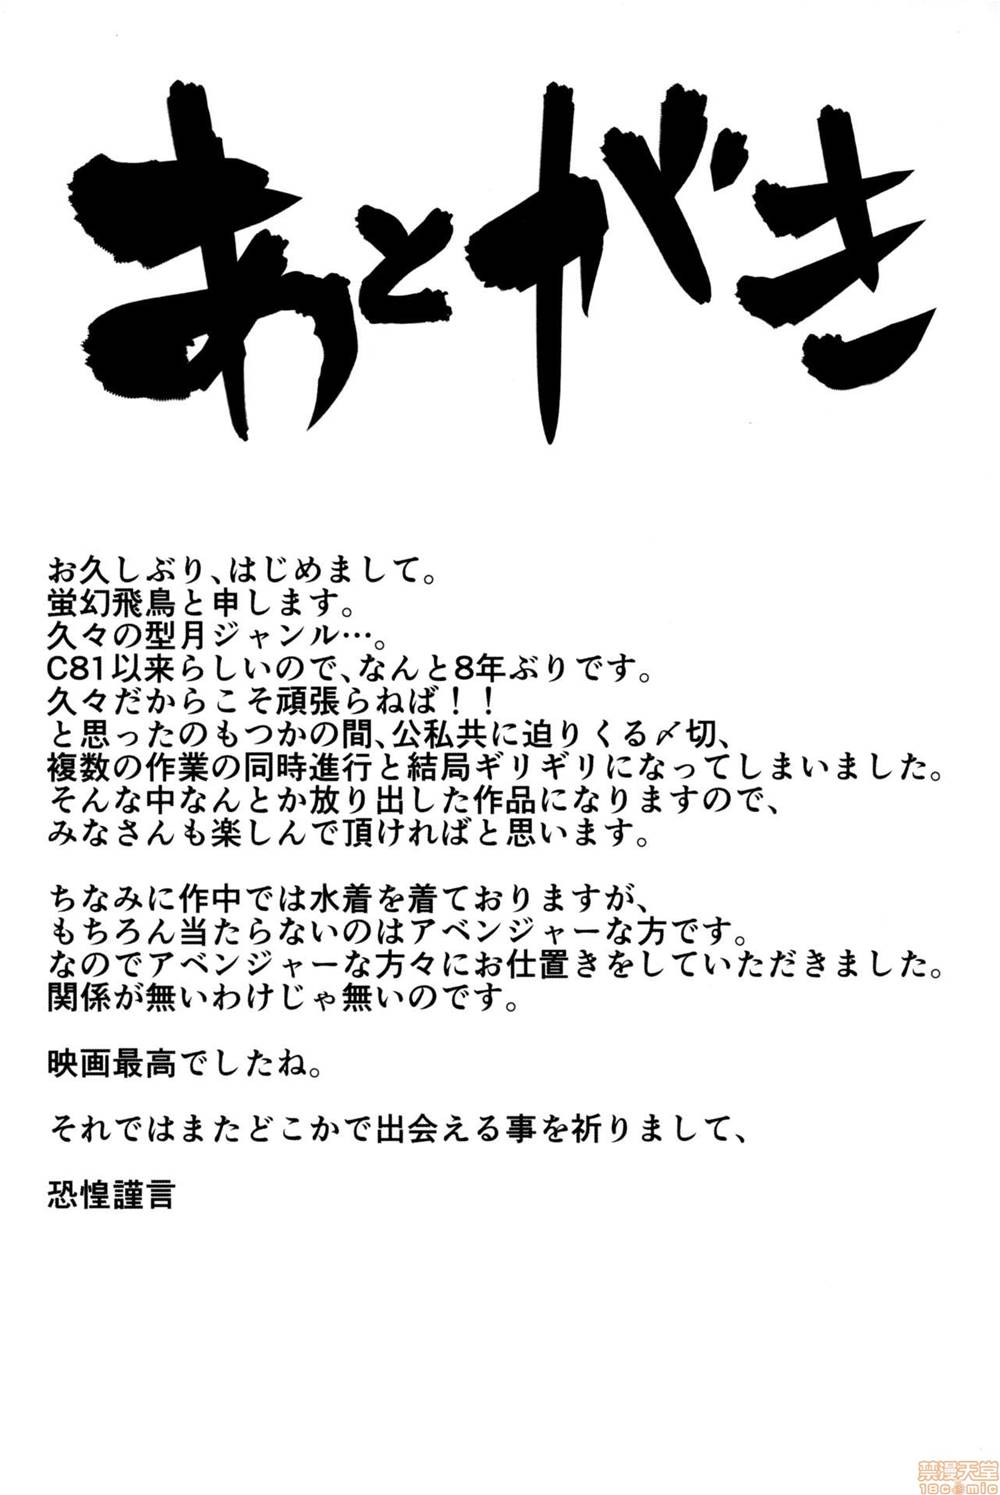 あとがき
お久しぶり、はじめまして。
蛍幻飛鳥と申します。
久々の型月ジャンル…。
C81以来らしいので、なんと8年ぶりです。
久々だからこそ頑張らねば！！
と思ったのもつかの間、公私共に迫りくる〆切、
複数の作業の同時進行と結局ギリギリになってしまいました。
そんな中なんとか放り出した作品になりますので、
みなさんも楽しんで頂ければと思います。
ちなみに作中では水着を着ておりますが、
もちろん当たらないのはアベンジャーな方です。
なのでアベンジャーな方々にお仕置きをしていただきました。
関係が無いわけじゃ無いのです。
映画最高でしたね。
それではまたどこかで出会える事を祈りまして、
恐惶謹言
禁漫天堂
18comic